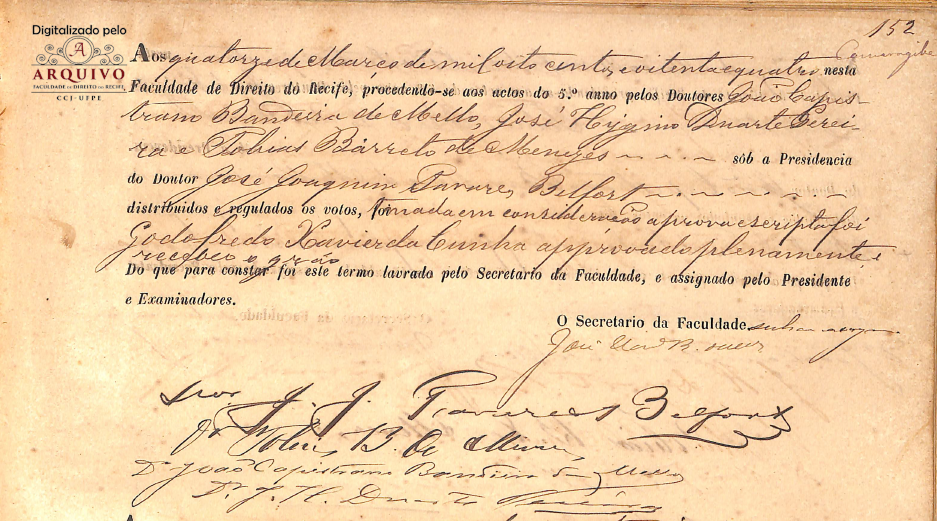 Digitalizado pelo
A
ARQUIVO
FACULDADE DE DIREITO DO RECIFE
CCJ-UFPE
152
Aos quatorze de Março de mil oito centos e oitenta e quatro nesta
Faculdade de Direito do Recife, procedendo-se aos actos do 5.º anno pelos Doutores João Capis-
trano Bandeira de Mello, José Hygino Duarte Perei-
ra e Tobias Barreto de Menezes sób a Presidencia
do Doutor José Joaquim Tavares Belfort
distribuidos e regulados os votos, tomada em consideração a prova escripta foi
Godofredo Xavier da Cunha approvado plenamente e
recebeo o gráo
Do que para constar foi este termo lavrado pelo Secretario da Faculdade, e assignado pelo Presidente
e Examinadores.
O Secretario da Faculdade
José
J. J. Tavares Belfort
Dr Tobias B. de Menezes
Dr João Capistrano Bandeira de Mello
Dr J. H. Duarte Pereira